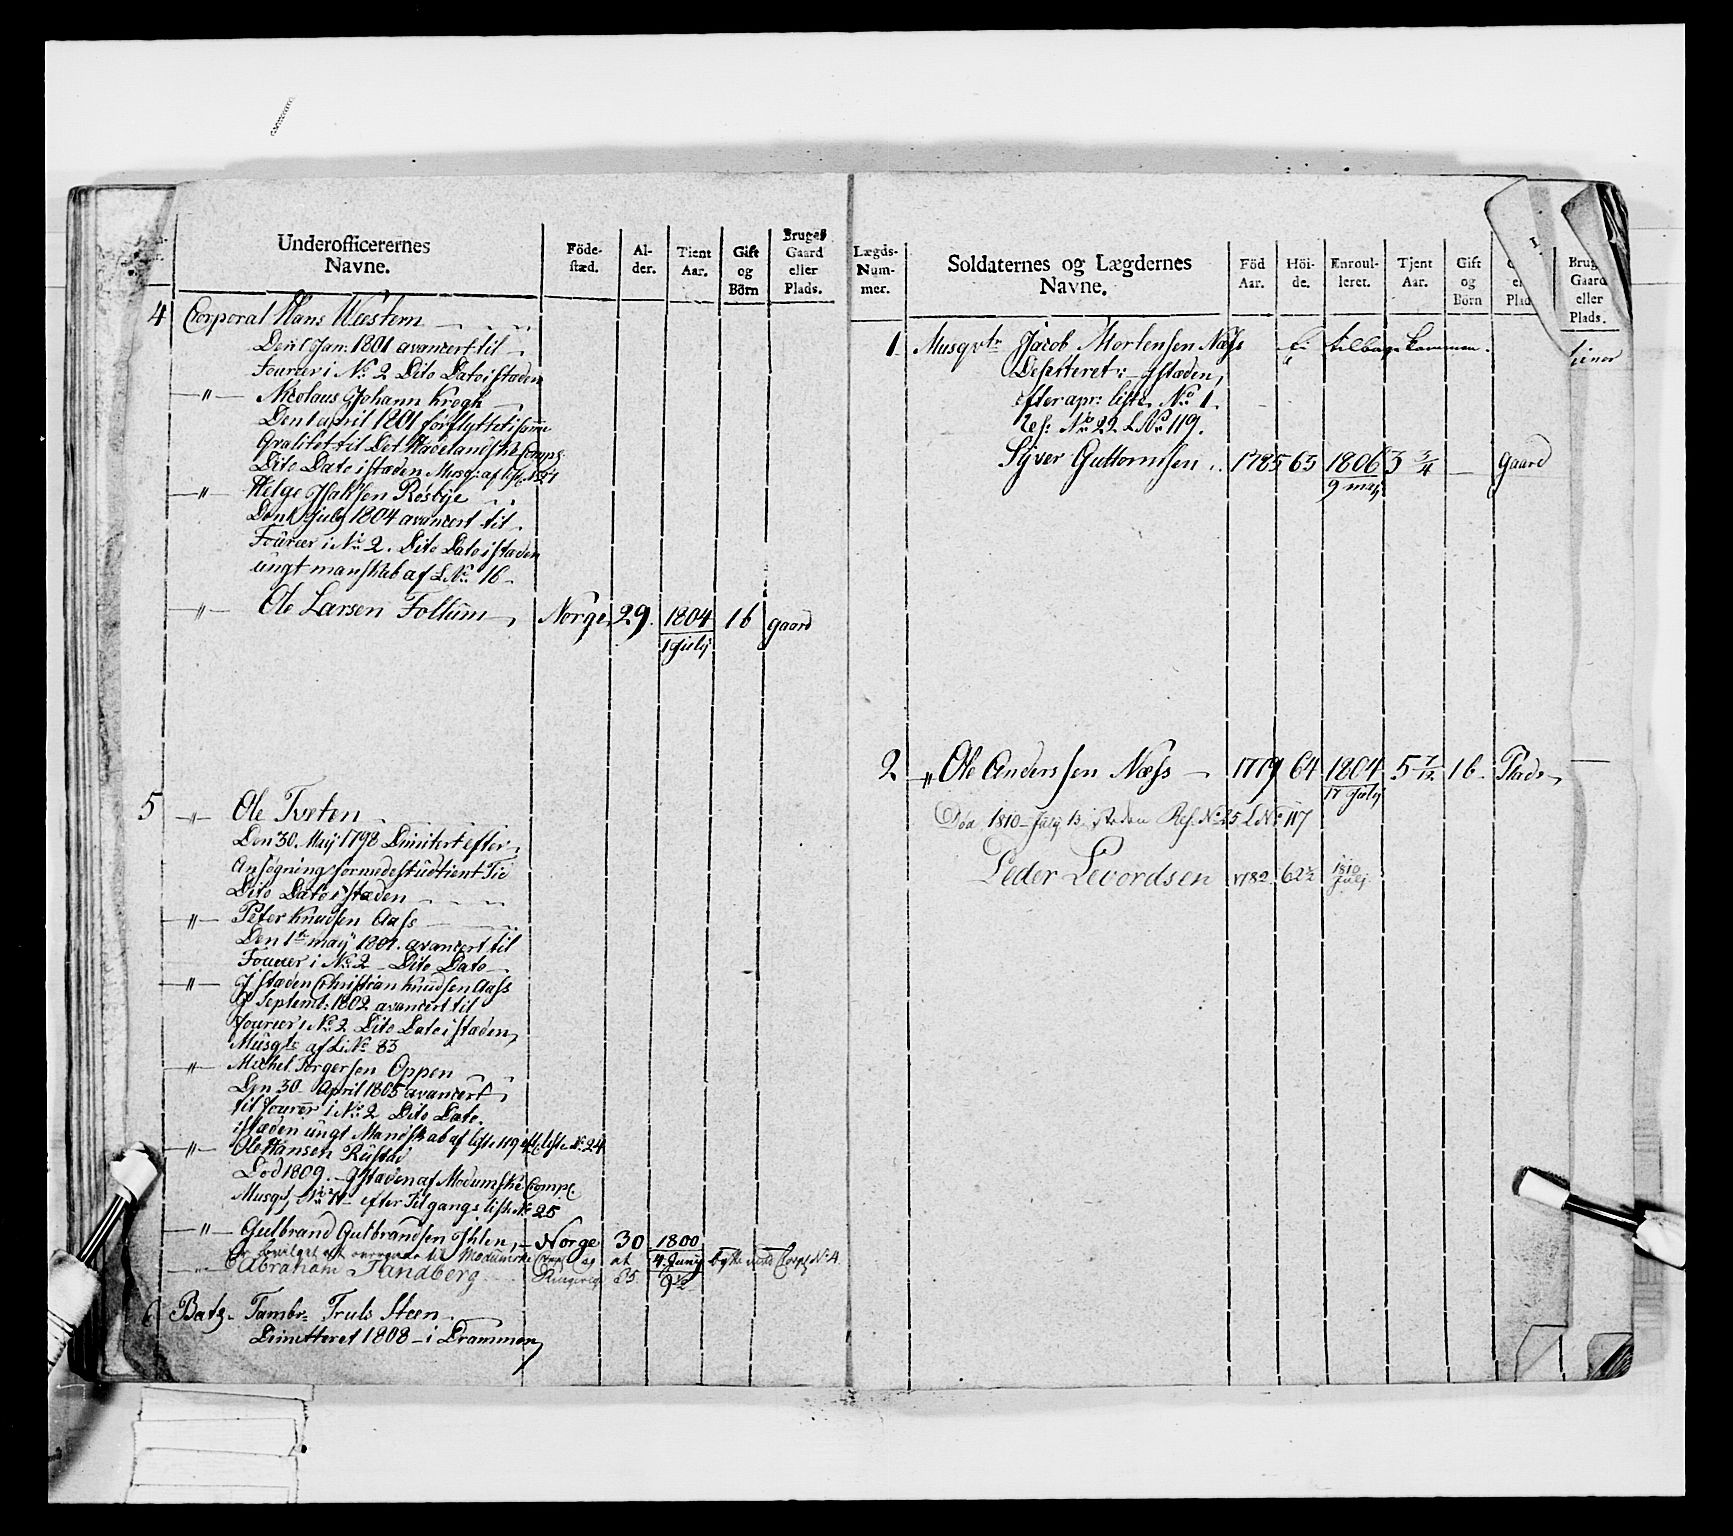 Underofficerernes
Navne.
Föde-
stæd.
Al-
der.
Tient
Aar.
Gift
og
Börn
Bruges
Gaard
eller
Plads.
4 Corporal Hans Wæstem
Den 1 Jan: 1801 avancert til
Fourer i No 2 Dito Dato i stæden
" Nicolaus Johann Krogh
Den 1 april 1801 forflyttet i samme
Qvalitet til Det Hadelandske Comp:
Dito Dato i stæden Musq: af
" Helge Isaksen Røsbye
Den 1 July 1804 avancert til
Fourer i No 2. Dito Dato i stæden
ungt manskab af L No 16
" Ole Larsen Follum Norge 29. 1804 1 6 gaard
1 July
5 " Ole Tveten
Den 30. May 1798 Dimitert efter
Ansøgning formedelst udtient Tid
Dito Dato i stæden
" Peter Knudsen Aass
Den 1te may 1801. avancert til
Fourer i No 2 Dito Dato
" I stæden Christian Knudsen Aass
Septemb: 1802 avancert til
Fourer i No 2 Dito Dato i stæden
Musqtr af L No 83
" Michel Torgersen Oppen
Den 30 April 1805 avancert
til Fourer i No 2 Dito Dato.
i stæden ungt Mandskab af 119 eft. liste No 24
" Ole Hansen Rustad
Død 1809. I stæden af Modumske Comp:
Musq: efter Tilgangs liste No 25
" Gulbrand Gulbrandsen Ihlen, Norge 30 1800
4 Juny
9 1/2
til Modumske Comp og at bytte med Corp: No 4
" Abraham Sandberg
6 Batl. Tambr Truls Steen
Dimitteret 1808 i Drammen
Lægds-
Num-
mer.
Soldaternes og Lægdernes
Navne.
Föd
Aar.
Höi-
de.
Enroul-
leret.
Tjent
Aar.
Gift
og
Börn
Plad
Brug
Gaard
eller
Plads.
1 Musqvtr Jacob Mortensen Næss Ei tilbagekommen.
Deserteret: I stæden
efter apr: liste No 1.
Res: No 22 L No 119.
Syver Guttormsen 1785 63 1806 3 3/4 — Gaard
9 may
2 " Ole Anderssen Næss 1779 64 1804 5 7/12 1 6 Plads
17 July
Död 1810 July 13 i steden Res. No 25 L No 117
Peder Levordsen 1782 62 1/2 1810
July